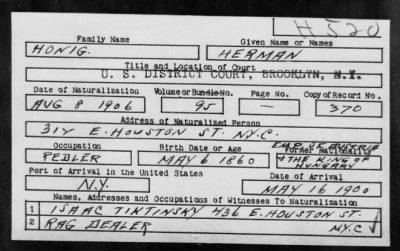 H520
Family Name Given Name or Names
HONIG. HERMAN
Title and Location of Court
U. S. DISTRICT COURT, BROOKLYN, N.Y.
Date of Naturalization Volume or Bundle No. Page No. Copy of Record No.
AUG 8 1906 95 — 370
Address of Naturalized Person
317 E. HOUSTON ST. N.Y.C.
EMP. OF AUSTRIA
Occupation Birth Date or Age Former Nationality
PEDLER MAY 6 1860 & THE KING OF HUNGARY
Port of Arrival in the United States Date of Arrival
N.Y. MAY 16 1900
Names, Addresses and Occupations of Witnesses To Naturalization
1 ISAAC TIKTINSKY 436 E. HOUSTON ST.
2 RAG DEALER N.Y.C